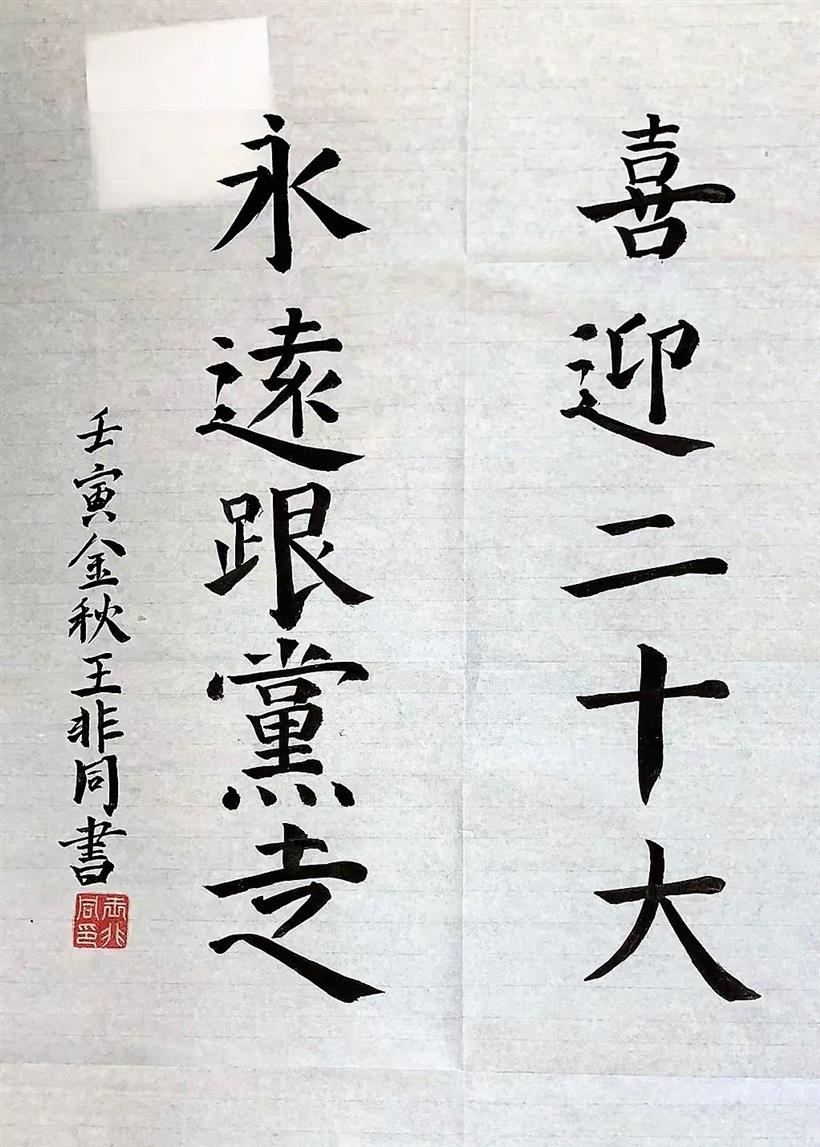 喜迎二十大
永遠跟黨走
壬寅金秋王非同書
王非同印